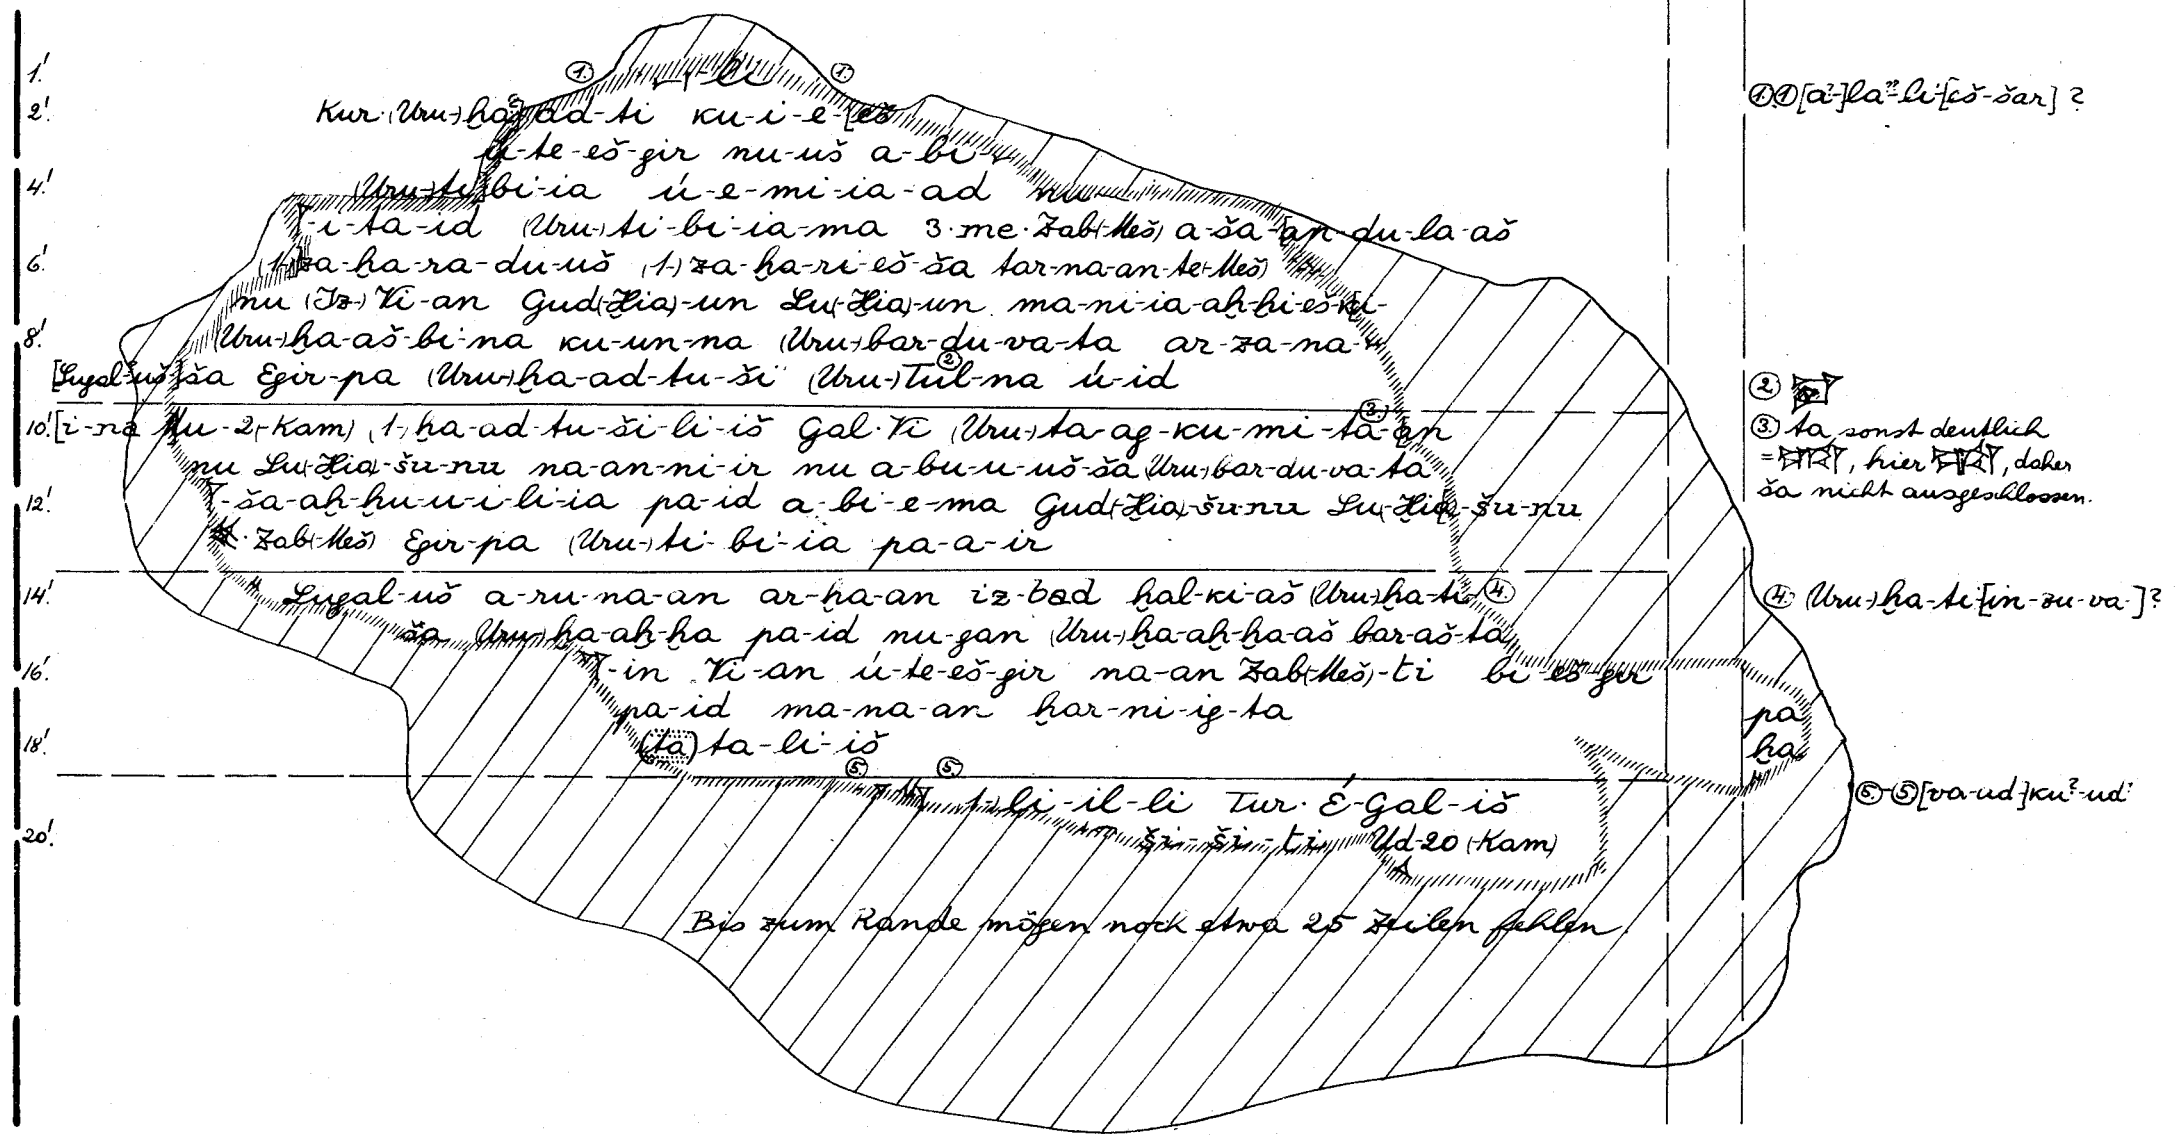 1'. -li-
2'. Kur·(Uru-)ḫa-ad-ti ku-i-e-[eš
ú-te-eš-gir nu-uš a-bi-
4'. (Uru-)ti-bi-ia ú-e-mi-ia-ad nu-
-i-ta-id (Uru-)ti-bi-ia-ma 3·me·Zab(-Meš) a-ša-[an-du-la-aš
6'. (1-)za-ḫa-ra-du-uš (1-)za-ḫa-ri-eš-ša tar-na-an-te(-Meš)
nu (Iz-)Vi-an Gud(-Ḫia)-un Lu(-Ḫia)-un ma-ni-ia-aḫ-ḫi-eš-k[i-
8'. (Uru-)ḫa-aš-bi-na ku-un-na (Uru-)bar-du-va-ta ar-za-na-
[Lugal-uš-]ša Egir-pa (Uru-)ḫa-ad-tu-ši (Uru-)Túl-na ú-id
10'. [i-na Mu-2(-Kam) (1-)ḫa-ad-tu-ši-li-iš Gal·Vi (Uru-)ta-ag-ku-mi-ta-[an
nu Lu(-Ḫia)-šu-nu na-an-ni-ir nu a-bu-u-uš-ša (Uru-)bar-du-va-ta
12'. -ša-aḫ-ḫu-u-i-li-ia pa-id a-bi-e-ma Gud(-Ḫia)-šu-nu Lu(-Ḫia)-šu-nu
·Zab(-Meš) Egir-pa (Uru-)ti-bi-ia pa-a-ir
14'. Lugal-uš a-ru-na-an ar-ḫa-an iz-bad ḫal-ki-aš (Uru-)ḫa-ti-
ša (Uru-)ḫa-aḫ-ḫa pa-id nu-gan (Uru-)ḫa-aḫ-ḫa-aš bar-aš-ta
16'. -in Vi-an ú-te-eš-gir na-an Zab(-Meš)-ti bi-eš-gir
pa-id ma-na-an ḫar-ni-ig-ta pa
18'. (ta) ta-li-iš ḫa
(1-)li-il-li Tur·É-Gal-iš
20'. ši-ši-ti Ud-20(-Kam)
Bis zum Rande mögen noch etwa 25 Zeilen fehlen.
①① [a?-]la??-li-[eš-šar] ?
②
③ ta sonst deutlich
= , hier , daher
ša nicht ausgeschlossen.
④ (Uru-)ḫa-ti-[in-zu-va-]?
⑤-⑤ [va-ud]ku?-ud?